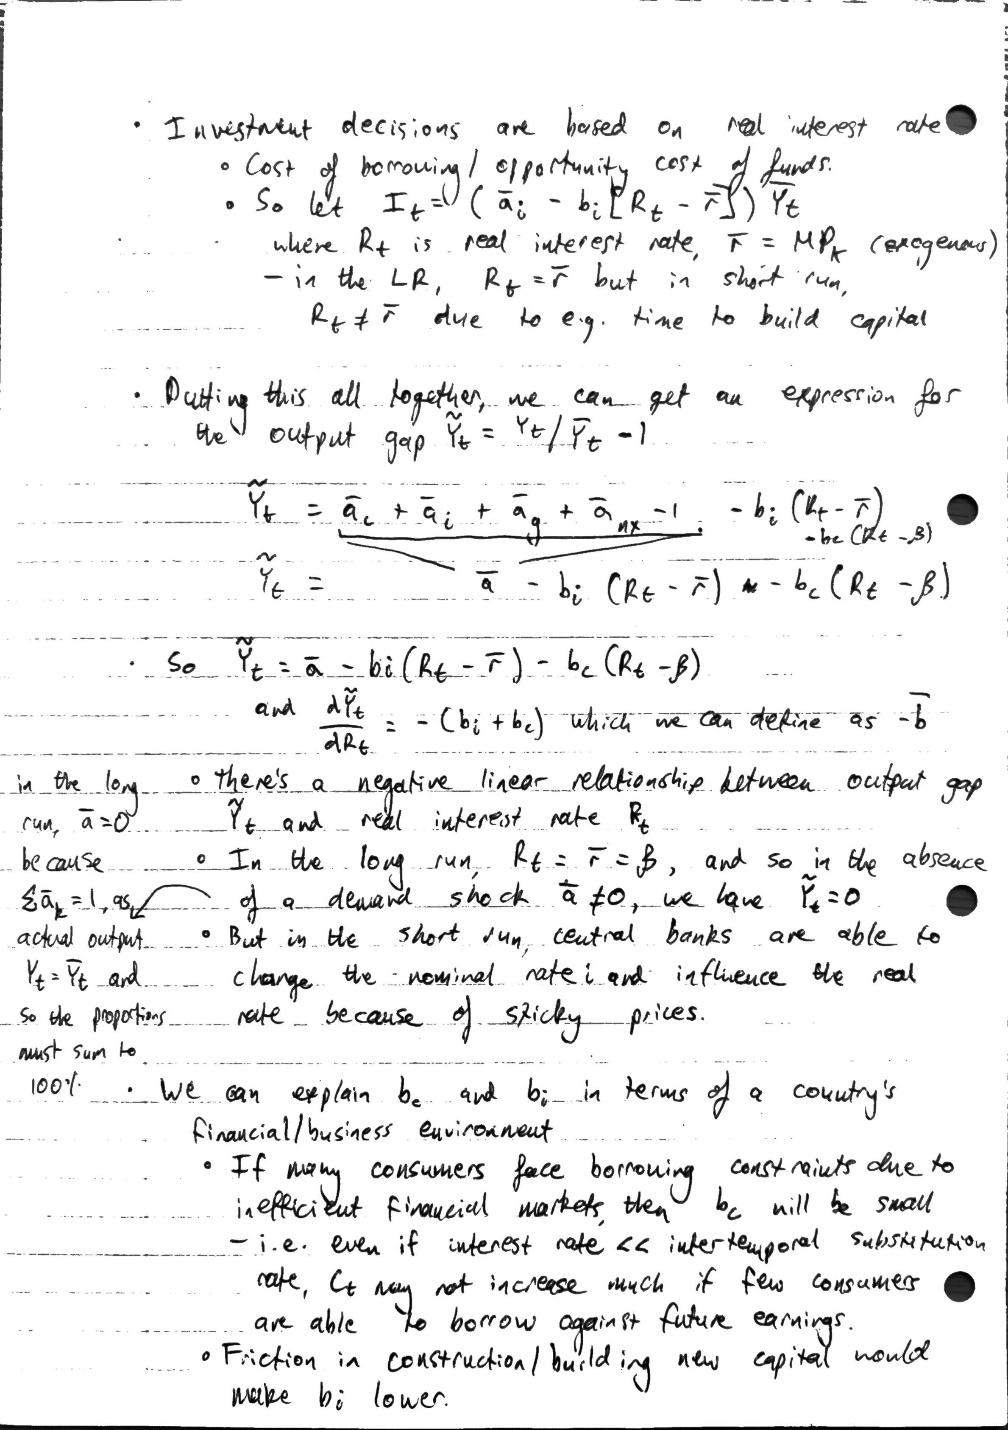 • Investment decisions are based on real interest rate
∘ Cost of borrowing / opportunity cost of funds.
• So let I_t = (ā_i - b_i [R_t - r̄]) Ȳ_t
where R_t is real interest rate, r̄ = MP_K (exogenous)
- in the LR, R_t = r̄ but in short run,
R_t ≠ r̄ due to e.g. time to build capital
• Putting this all together, we can get an expression for
the output gap Ỹ_t = Y_t / Ȳ_t - 1
Ỹ_t = ā_c + ā_i + ā_g + ā_nx - 1 - b_i (R_t - r̄)
- b_c (R_t - β)
Ỹ_t = ā - b_i (R_t - r̄) - b_c (R_t - β)
• So Ỹ_t = ā - b_i (R_t - r̄) - b_c (R_t - β)
and dỸ_t/dR_t = - (b_i + b_c) which we can define as - b̄
∘ There's a negative linear relationship between output gap
Ỹ_t and real interest rate R_t
∘ In the long run, R_t = r̄ = β, and so in the absence
of a demand shock ā ≠ 0, we have Ỹ_t = 0
∘ But in the short run, central banks are able to
change the nominal rate i and influence the real
rate because of sticky prices.
in the long
run, ā = 0
because
Σā_k = 1, as
actual output
Y_t = Ȳ_t and
so the proportions
must sum to
100%
• We can explain b_c and b_i in terms of a country's
financial/business environment
• If many consumers face borrowing constraints due to
inefficient financial markets, then b_c will be small
- i.e. even if interest rate << intertemporal substitution
rate, C_t may not increase much if few consumers
are able to borrow against future earnings.
∘ Friction in construction/building new capital would
make b_i lower.